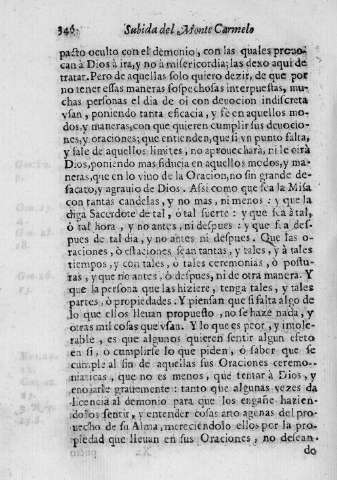 346 Subida del Monte Carmelo
pacto oculto con el demonio, con las quales prouo-
can à Dios à ira, y no à misericordia; las dexo aqui de
tratar. Pero de aquellas solo quiero dezir, de que por
no tener essas maneras sospechosas interpuestas, mu-
chas personas el dia de oi con deuocion indiscreta
vsan, poniendo tanta eficacia, y fe en aquellos mo-
dos, y maneras, con que quieren cumplir sus deuocio-
nes, y oraciones; que entienden, que si vn punto falta,
y sale de aquellos limites, no aprouecharà, ni le oirà
Dios, poniendo mas fiducia en aquellos modos, y ma-
neras, que en lo viuo de la Oracion, no sin grande de-
sacato, y agrauio de Dios. Assi como que sea la Misa
con tantas candelas, y no mas, ni menos: y que la
diga Sacerdote de tal, ò tal suerte: y que sea à tal,
ò tal hora, y no antes, ni despues: y que sea des-
pues de tal dia, y no antes ni despues. Que las o-
raciones, ò estaciones sean tantas, y tales, y à tales
tiempos, y con tales, ò tales ceremonias, ò postu-
ras, y que no antes, ò despues, ni de otra manera. Y
que la persona que las hiziere, tenga tales, y tales
partes, ò propiedades. Y piensan que si falta algo de
lo que ellos lleuan propuesto, no se haze nada, y
otras mil cosas que vsan. Y lo que es peor, y intole-
rable, es que algunos quieren sentir algun efeto
en si, ò cumplirse lo que piden, ò saber que se
cumple al fin de aquellas sus Oraciones ceremo-
niaticas, que no es menos, que tentar à Dios, y
enojarle grauemente: tanto que algunas vezes da
licencia al demonio para que los engañe hazien-
dolos sentir, y entender cosas arto agenas del pro-
uecho de su Alma, mereciendolo ellos por la pro-
piedad que lleuan en sus Oraciones, no desean-
do